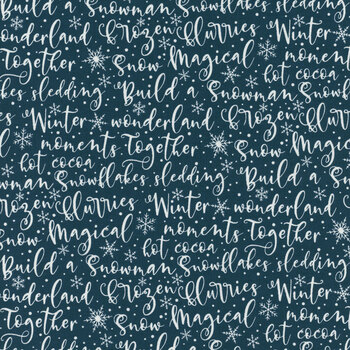 Build a Snowman Frozen Flurries
wonderland Frozen Flurries Winter
Together Snow Magical moments
Snowflakes sledding Build a Snowman hot cocoa
Winter wonderland Snowflakes
moments Together Snow
hot cocoa Snowflakes sledding Build a
Frozen Flurries Winter wonderland
Snow Magical moments Together
hot cocoa
Build a Snowman Snowflakes sledding
wonderland Frozen Flurries Winter
Together Snow Magical moments
hot cocoa